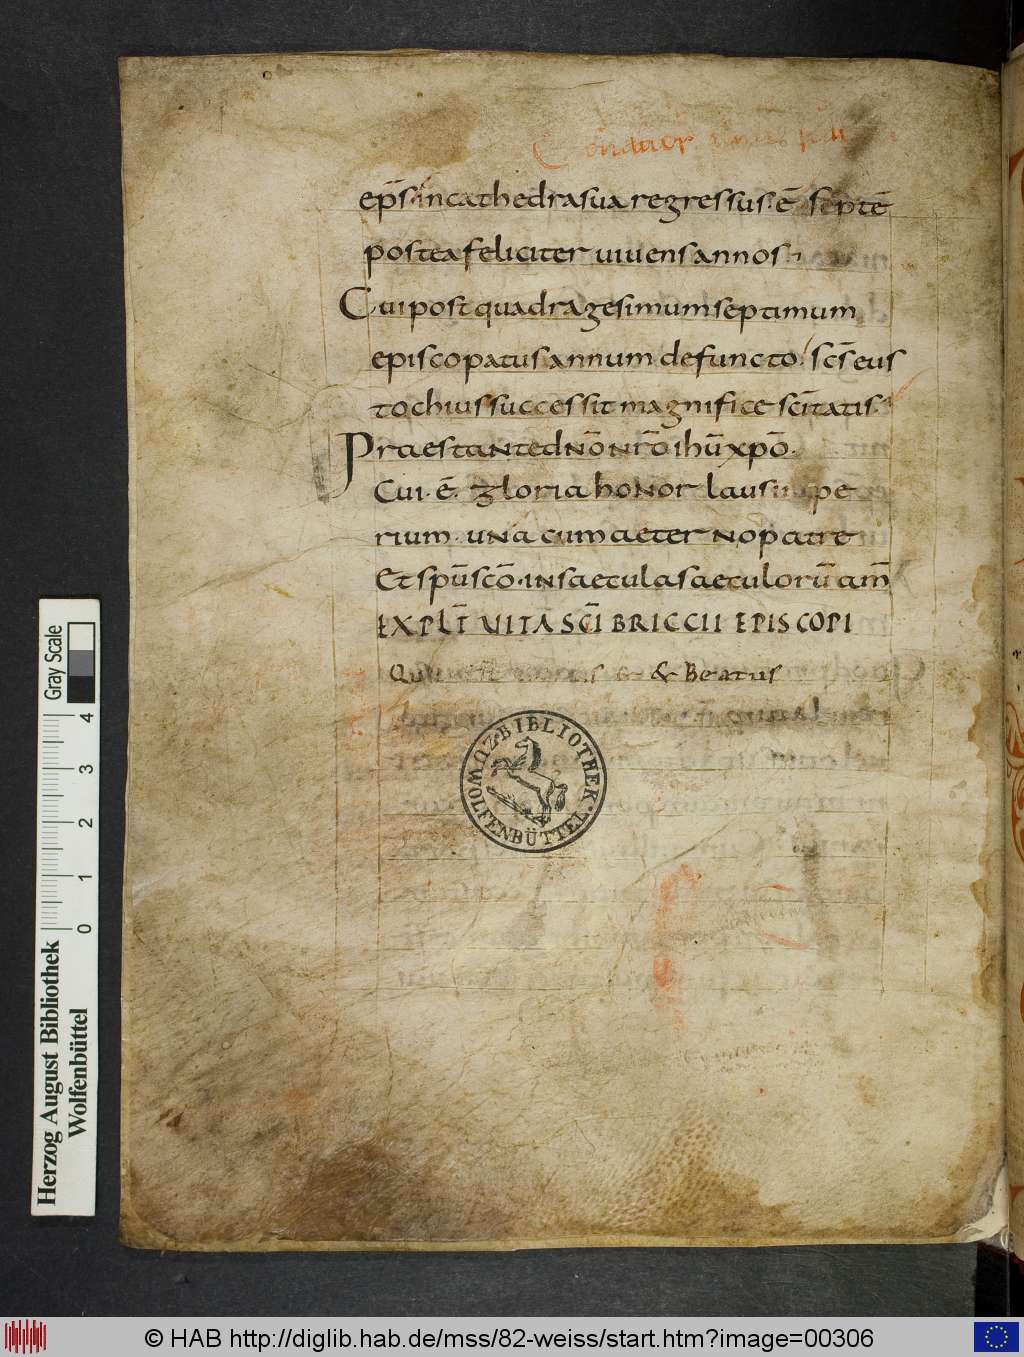 ep̄s. in cathedra sua regressus. ē. septē
postea feliciter uiuens annos;
Cui post quadragesimum septimum
episcopatus annum defuncto. sc̄s eus
tochius successit magnificę sc̄itatis.
Praestante dn̄o nr̄o ihū xpō.
Cui. ē. gloria honor laus impe
rium. una cum aeterno patre
Et spū scō. in saecula saeculorū am̄
EXPLI̅T UITA SCI̅ BRICCII EPISCOPI
& Beatus
BIBLIOTHEK WOLFENBÜTTEL
Gray Scale
4 3 2 1 0
Herzog August Bibliothek
Wolfenbüttel
© HAB http://diglib.hab.de/mss/82-weiss/start.htm?image=00306